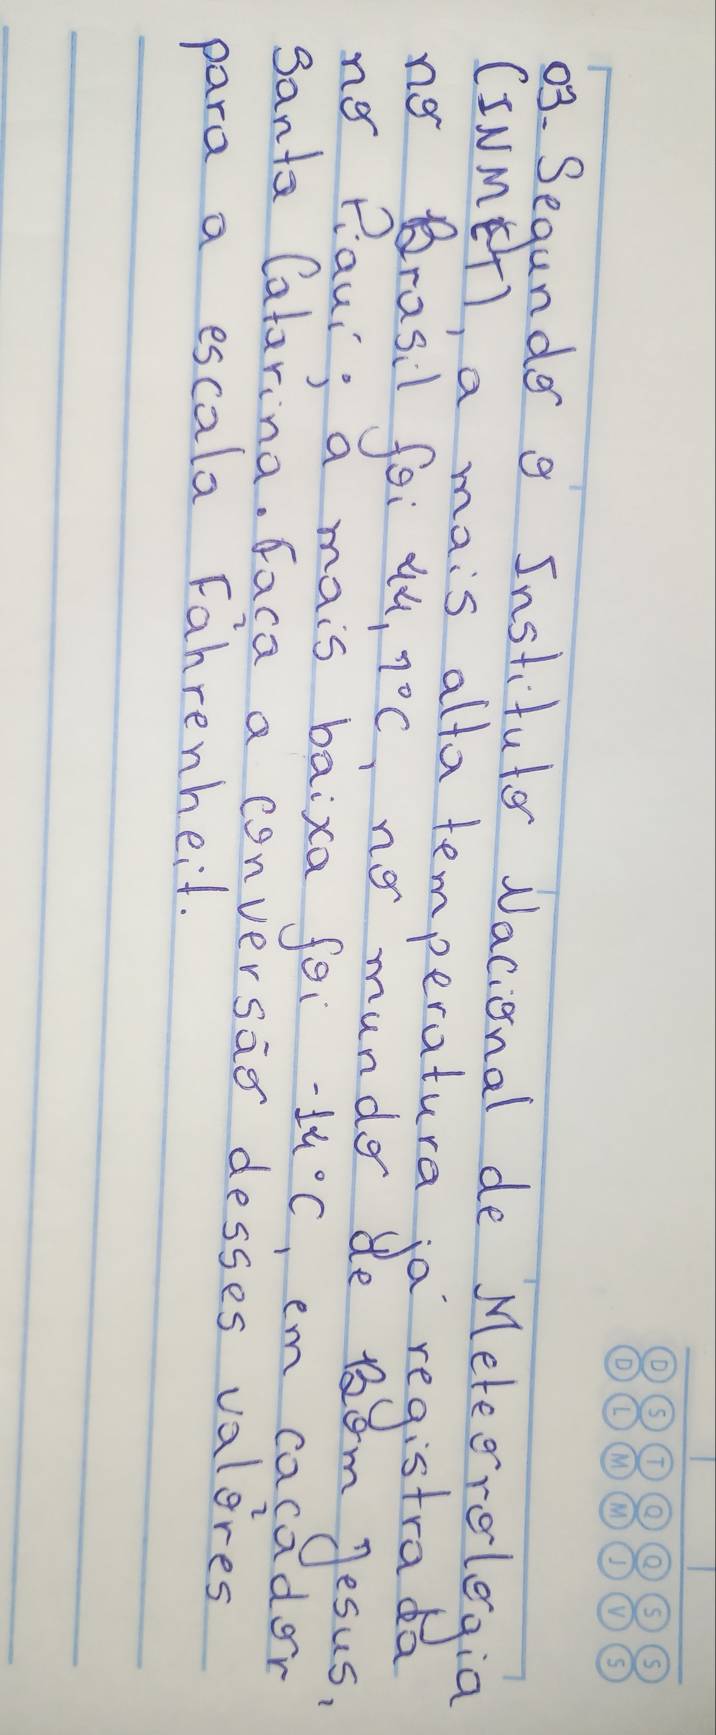 D S T Q Q S S
D L M M J V S
03- Segundo o Instituto Nacional de Meteorologia
(INMET), a mais alta temperatura já registrada
no Brasil foi 44,7°C, no mundo de Bom Jesus,
no Piauí; a mais baixa foi -14°C, em caçador
Santa Catarina. Faça a conversão desses valores
para a escala Fahrenheit.